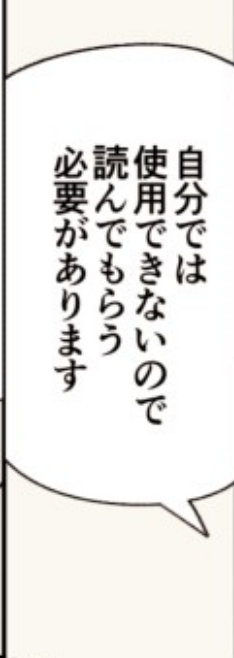 自分では
使用できないので
読んでもらう
必要があります